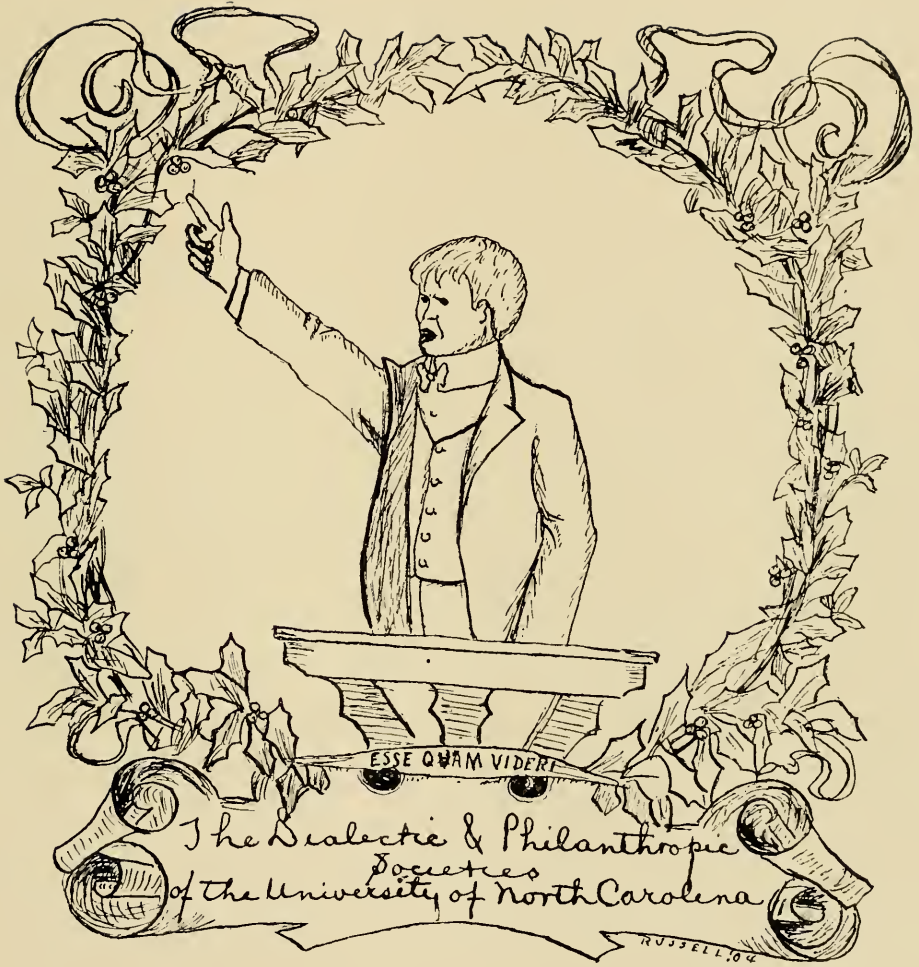 ESSE QUAM VIDERI
The Dialectic & Philanthropic
Societies
of the University of North Carolina
RUSSELL '04